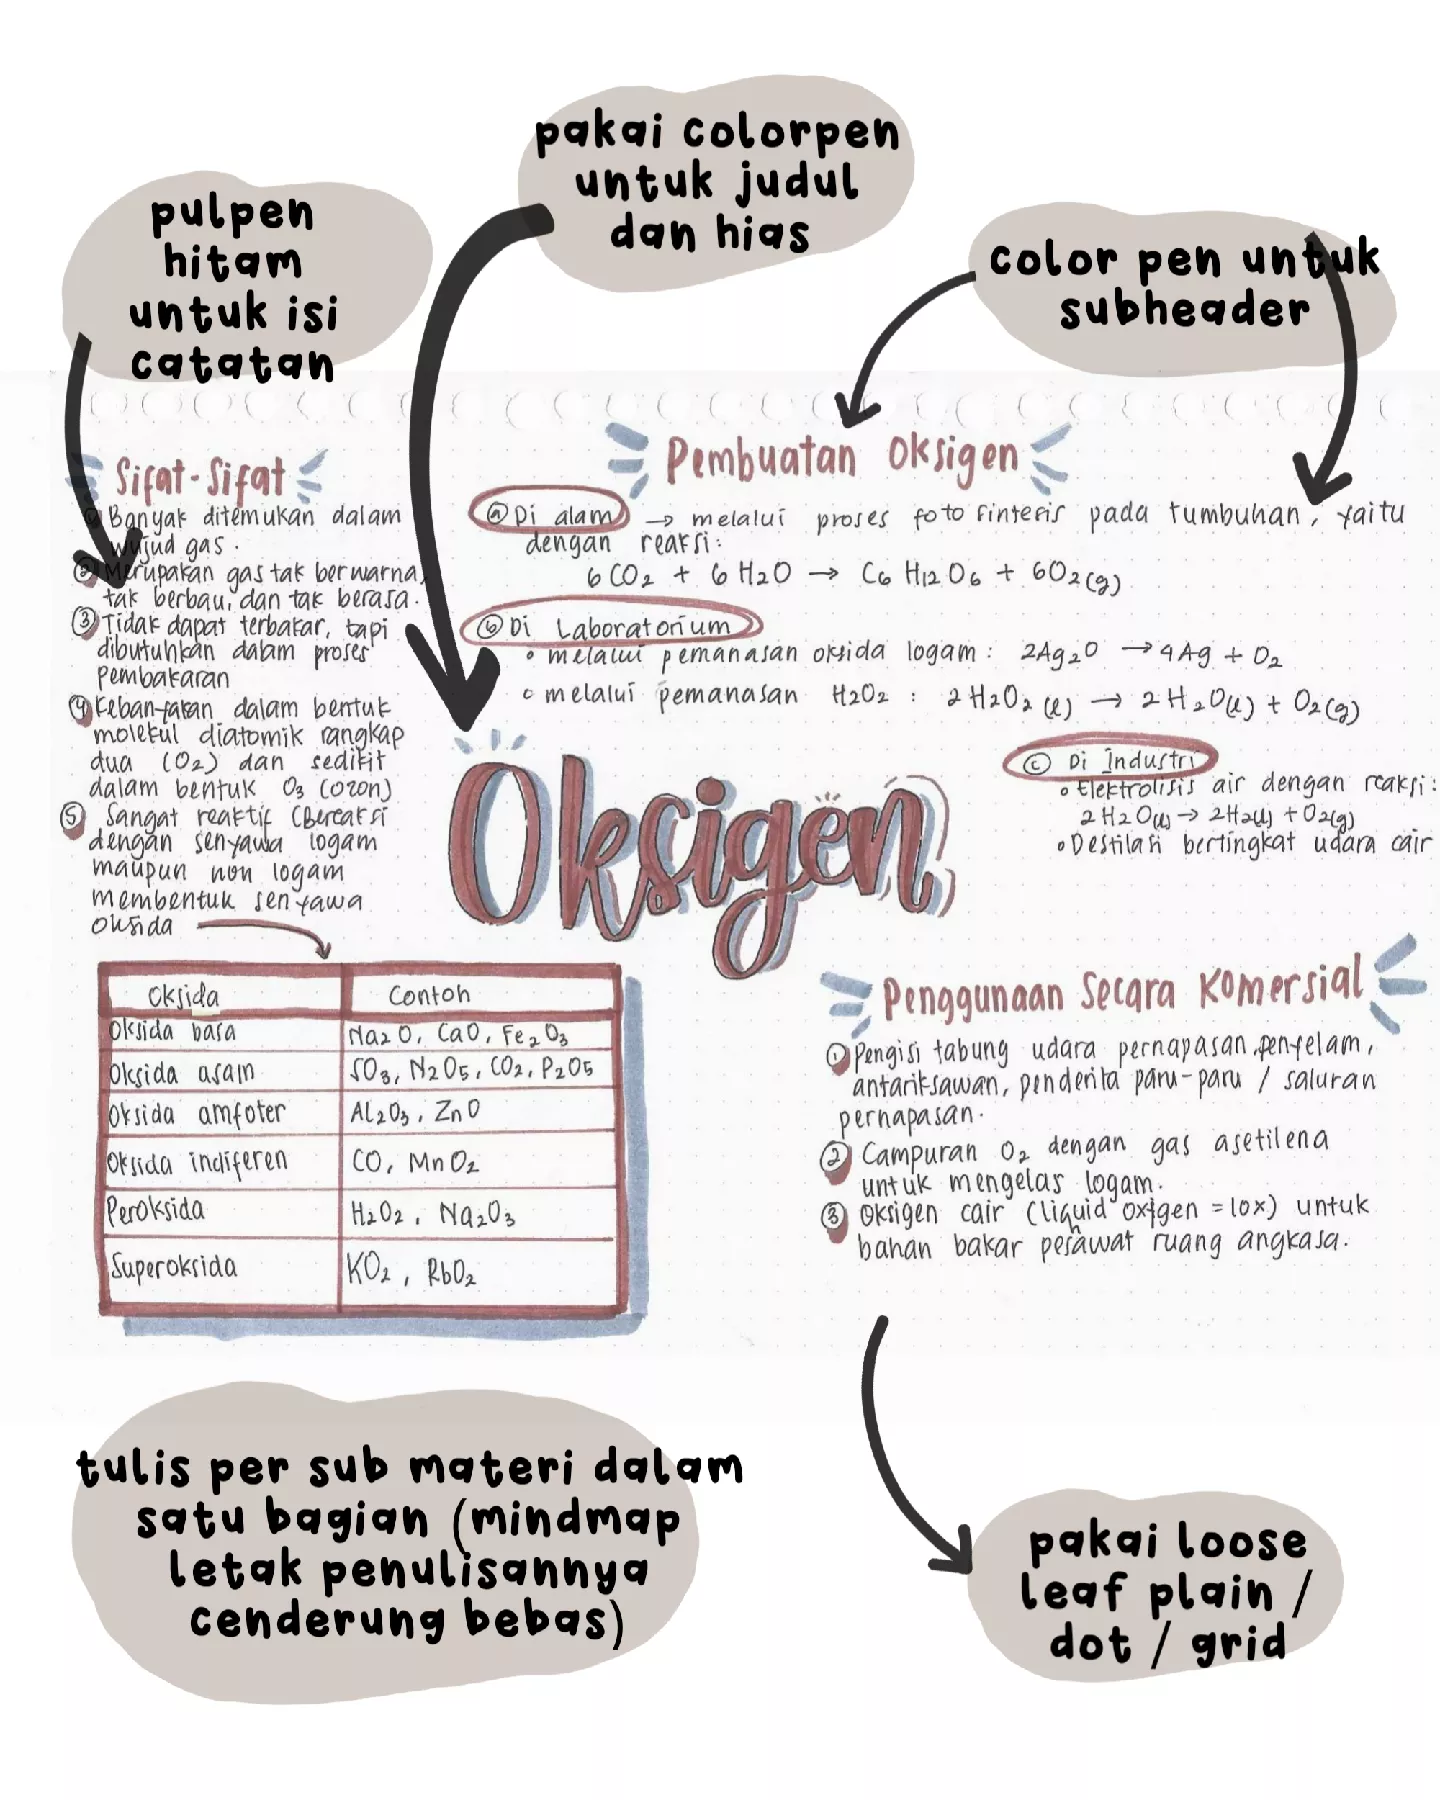 pakai colorpen
untuk judul
dan hias
pulpen
hitam
untuk isi
catatan
color pen untuk
subheader
Sifat-Sifat
① Banyak ditemukan dalam
wujud gas.
② Merupakan gas tak berwarna,
tak berbau, dan tak berasa.
③ Tidak dapat terbakar, tapi
dibutuhkan dalam proses
Pembakaran
④ Kebanyakan dalam bentuk
molekul diatomik rangkap
dua (O₂) dan sedikit
dalam bentuk O₃ (ozon)
⑤ Sangat reaktif (Bereaksi
dengan senyawa logam
maupun non logam
membentuk senyawa
oksida
Pembuatan Oksigen
ⓐ Di alam → melalui proses fotosintesis pada tumbuhan, yaitu
dengan reaksi:
6 CO₂ + 6 H₂O → C₆ H₁₂ O₆ + 6O₂(g)
ⓑ Di Laboratorium
• melalui pemanasan oksida logam : 2Ag₂O → 4Ag + O₂
• melalui pemanasan H₂O₂ : 2H₂O₂ (l) → 2 H₂O(l) + O₂(g)
ⓒ Di Industri
• Elektrolisis air dengan reaksi:
2 H₂O(l) → 2H₂(l) + O₂(g)
• Destilasi bertingkat udara cair
Oksigen
Oksida Contoh
Oksida basa Na₂O, CaO, Fe₂O₃
Oksida asam SO₃, N₂O₅, CO₂, P₂O₅
Oksida amfoter Al₂O₃, ZnO
Oksida indiferen CO, MnO₂
Peroksida H₂O₂, Na₂O₃
Superoksida KO₂, RbO₂
Penggunaan Secara Komersial
① Pengisi tabung udara pernapasan penyelam,
antariksawan, penderita paru-paru / saluran
pernapasan.
② Campuran O₂ dengan gas asetilena
untuk mengelas logam.
③ Oksigen cair (liquid oxygen = lox) untuk
bahan bakar pesawat ruang angkasa.
tulis per sub materi dalam
satu bagian (mindmap
letak penulisannya
cenderung bebas)
pakai loose
leaf plain /
dot / grid